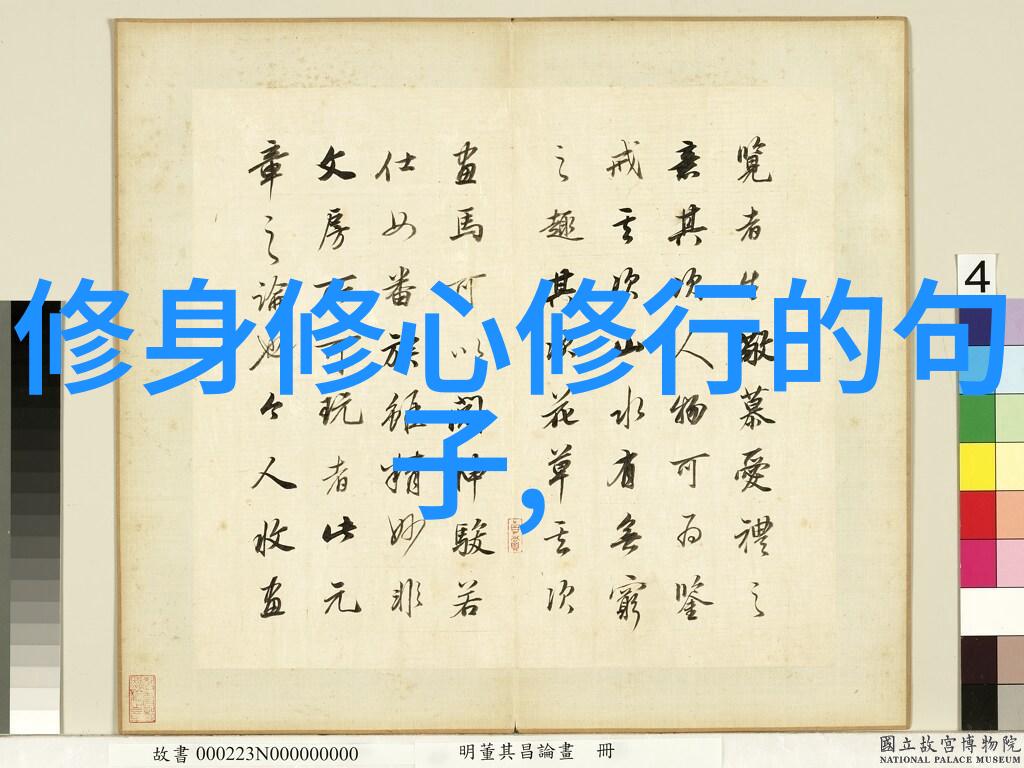 修身修心修行的句
子,
覽者生敬慕愛禮之
意其次人物可為鑒
戒其次山水有無窮
之趣其次花草其次
畫馬可以閱神駿若
仕女番族雖精妙非
文房所可玩者此元
章之論也今人收畫
4
故書 000223N000000000
明董其昌論畫 冊
國立故宮博物院
NATIONAL PALACE MUSEUM